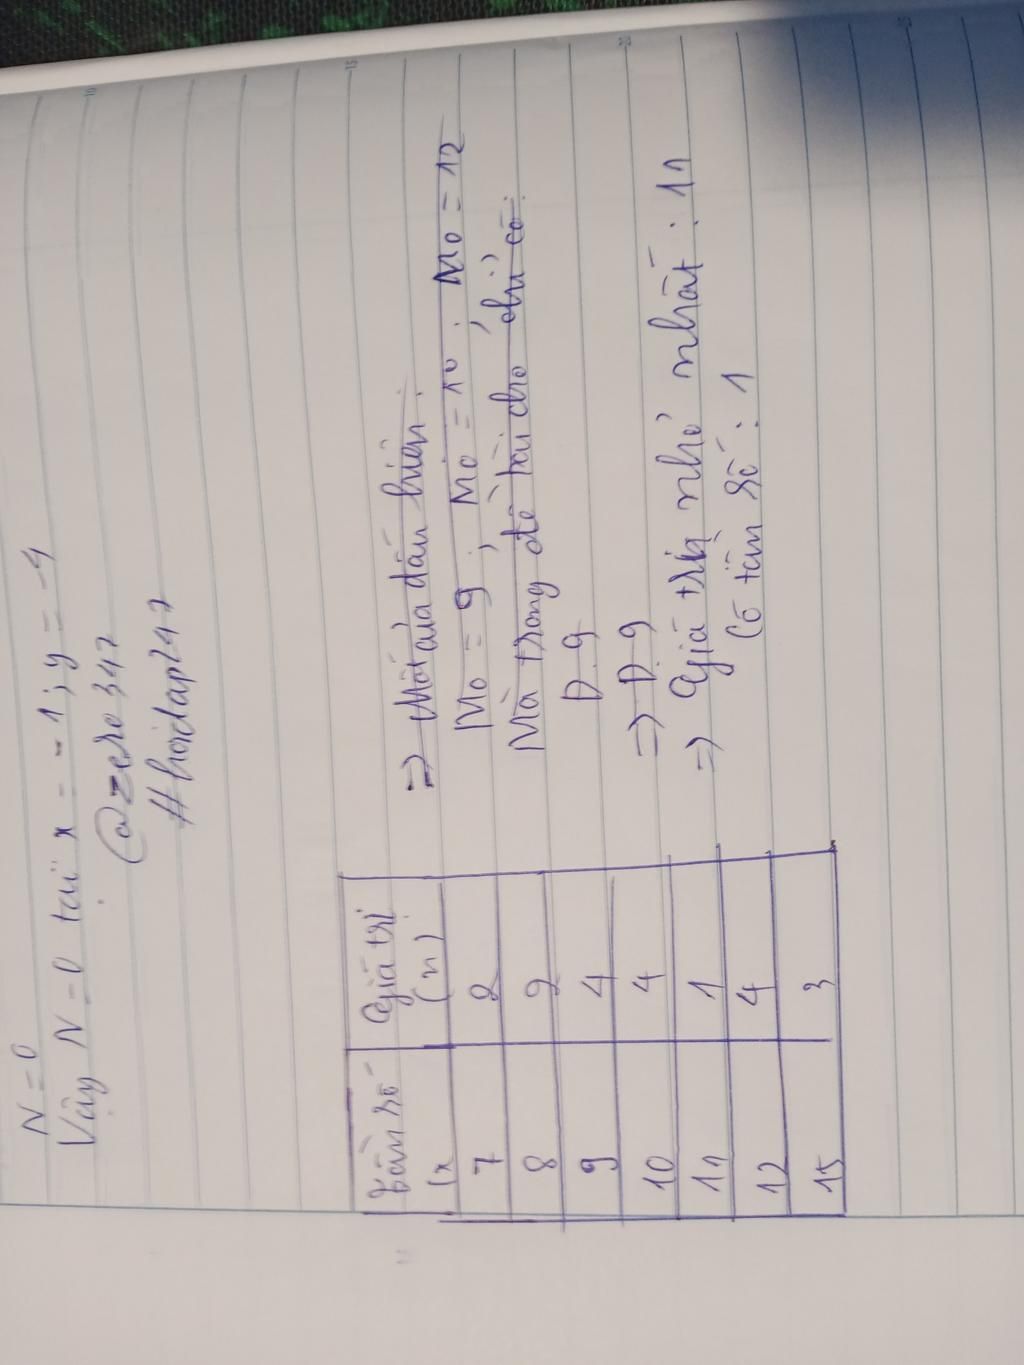 N = 0
Vậy N = 0 tại x = -1 ; y = -4
@zero347
#hoidap247
Tần số (x | Giá trị (n)
7 | 2
8 | 2
9 | 4
10 | 4
11 | 1
12 | 4
15 | 3
=> Mốt của dấu hiệu :
Mo = 9 ; Mo = 10 . Mo = 12
Mà trong đề bài cho chỉ có :
D. 9
=> D. 9
=> Giá trị nhỏ nhất : 11
Có tần số : 1